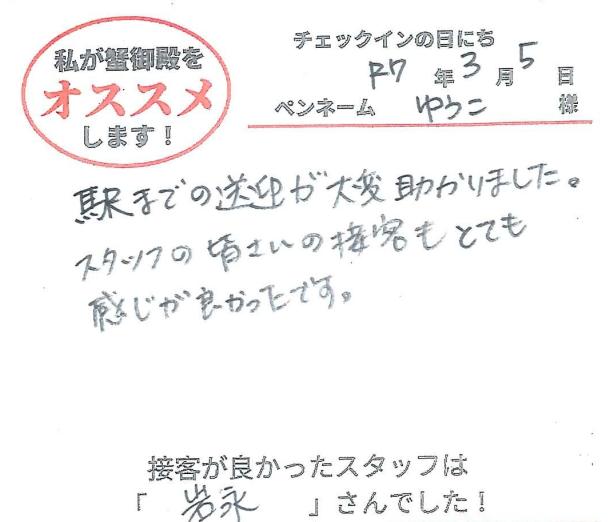 私が蟹御殿を
オススメ
します！
チェックインの日にち
R7 年 3 月 5 日
ペンネーム ゆうこ 様
駅までの送迎が大変助かりました。
スタッフの皆さいの接客もとても
感じが良かったです。
接客が良かったスタッフは
「 岩永 」さんでした！